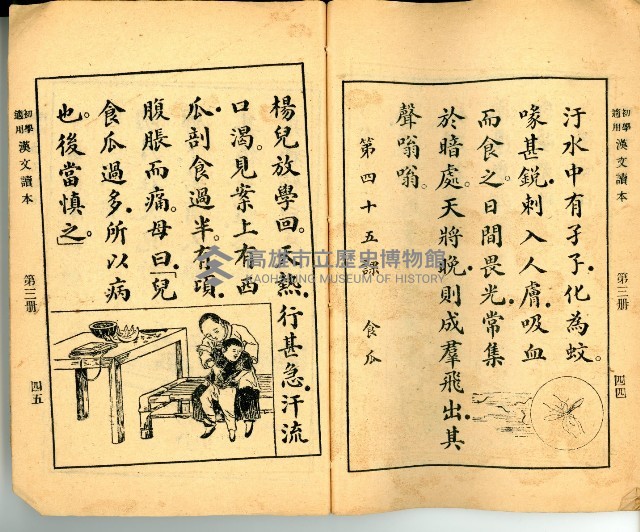 初學適用 漢文讀本 第三册 四四
汙水中有孑孑。化為蚊。
喙甚鋭。刺入人膚。吸血
而食之。日間畏光。常集
於暗處。天將晚。則成羣飛出。其
聲嗡嗡。
第四十五課 食瓜
楊兒放學回。天熱。行甚急。汗流
口渴。見案上有西
瓜。剖食過半。有頃。
腹脹而痛。母曰。「兒
食瓜過多。所以病
也。後當慎之。」
初學適用 漢文讀本 第三册 四五
高雄市立歷史博物館
KAOHSIUNG MUSEUM OF HISTORY